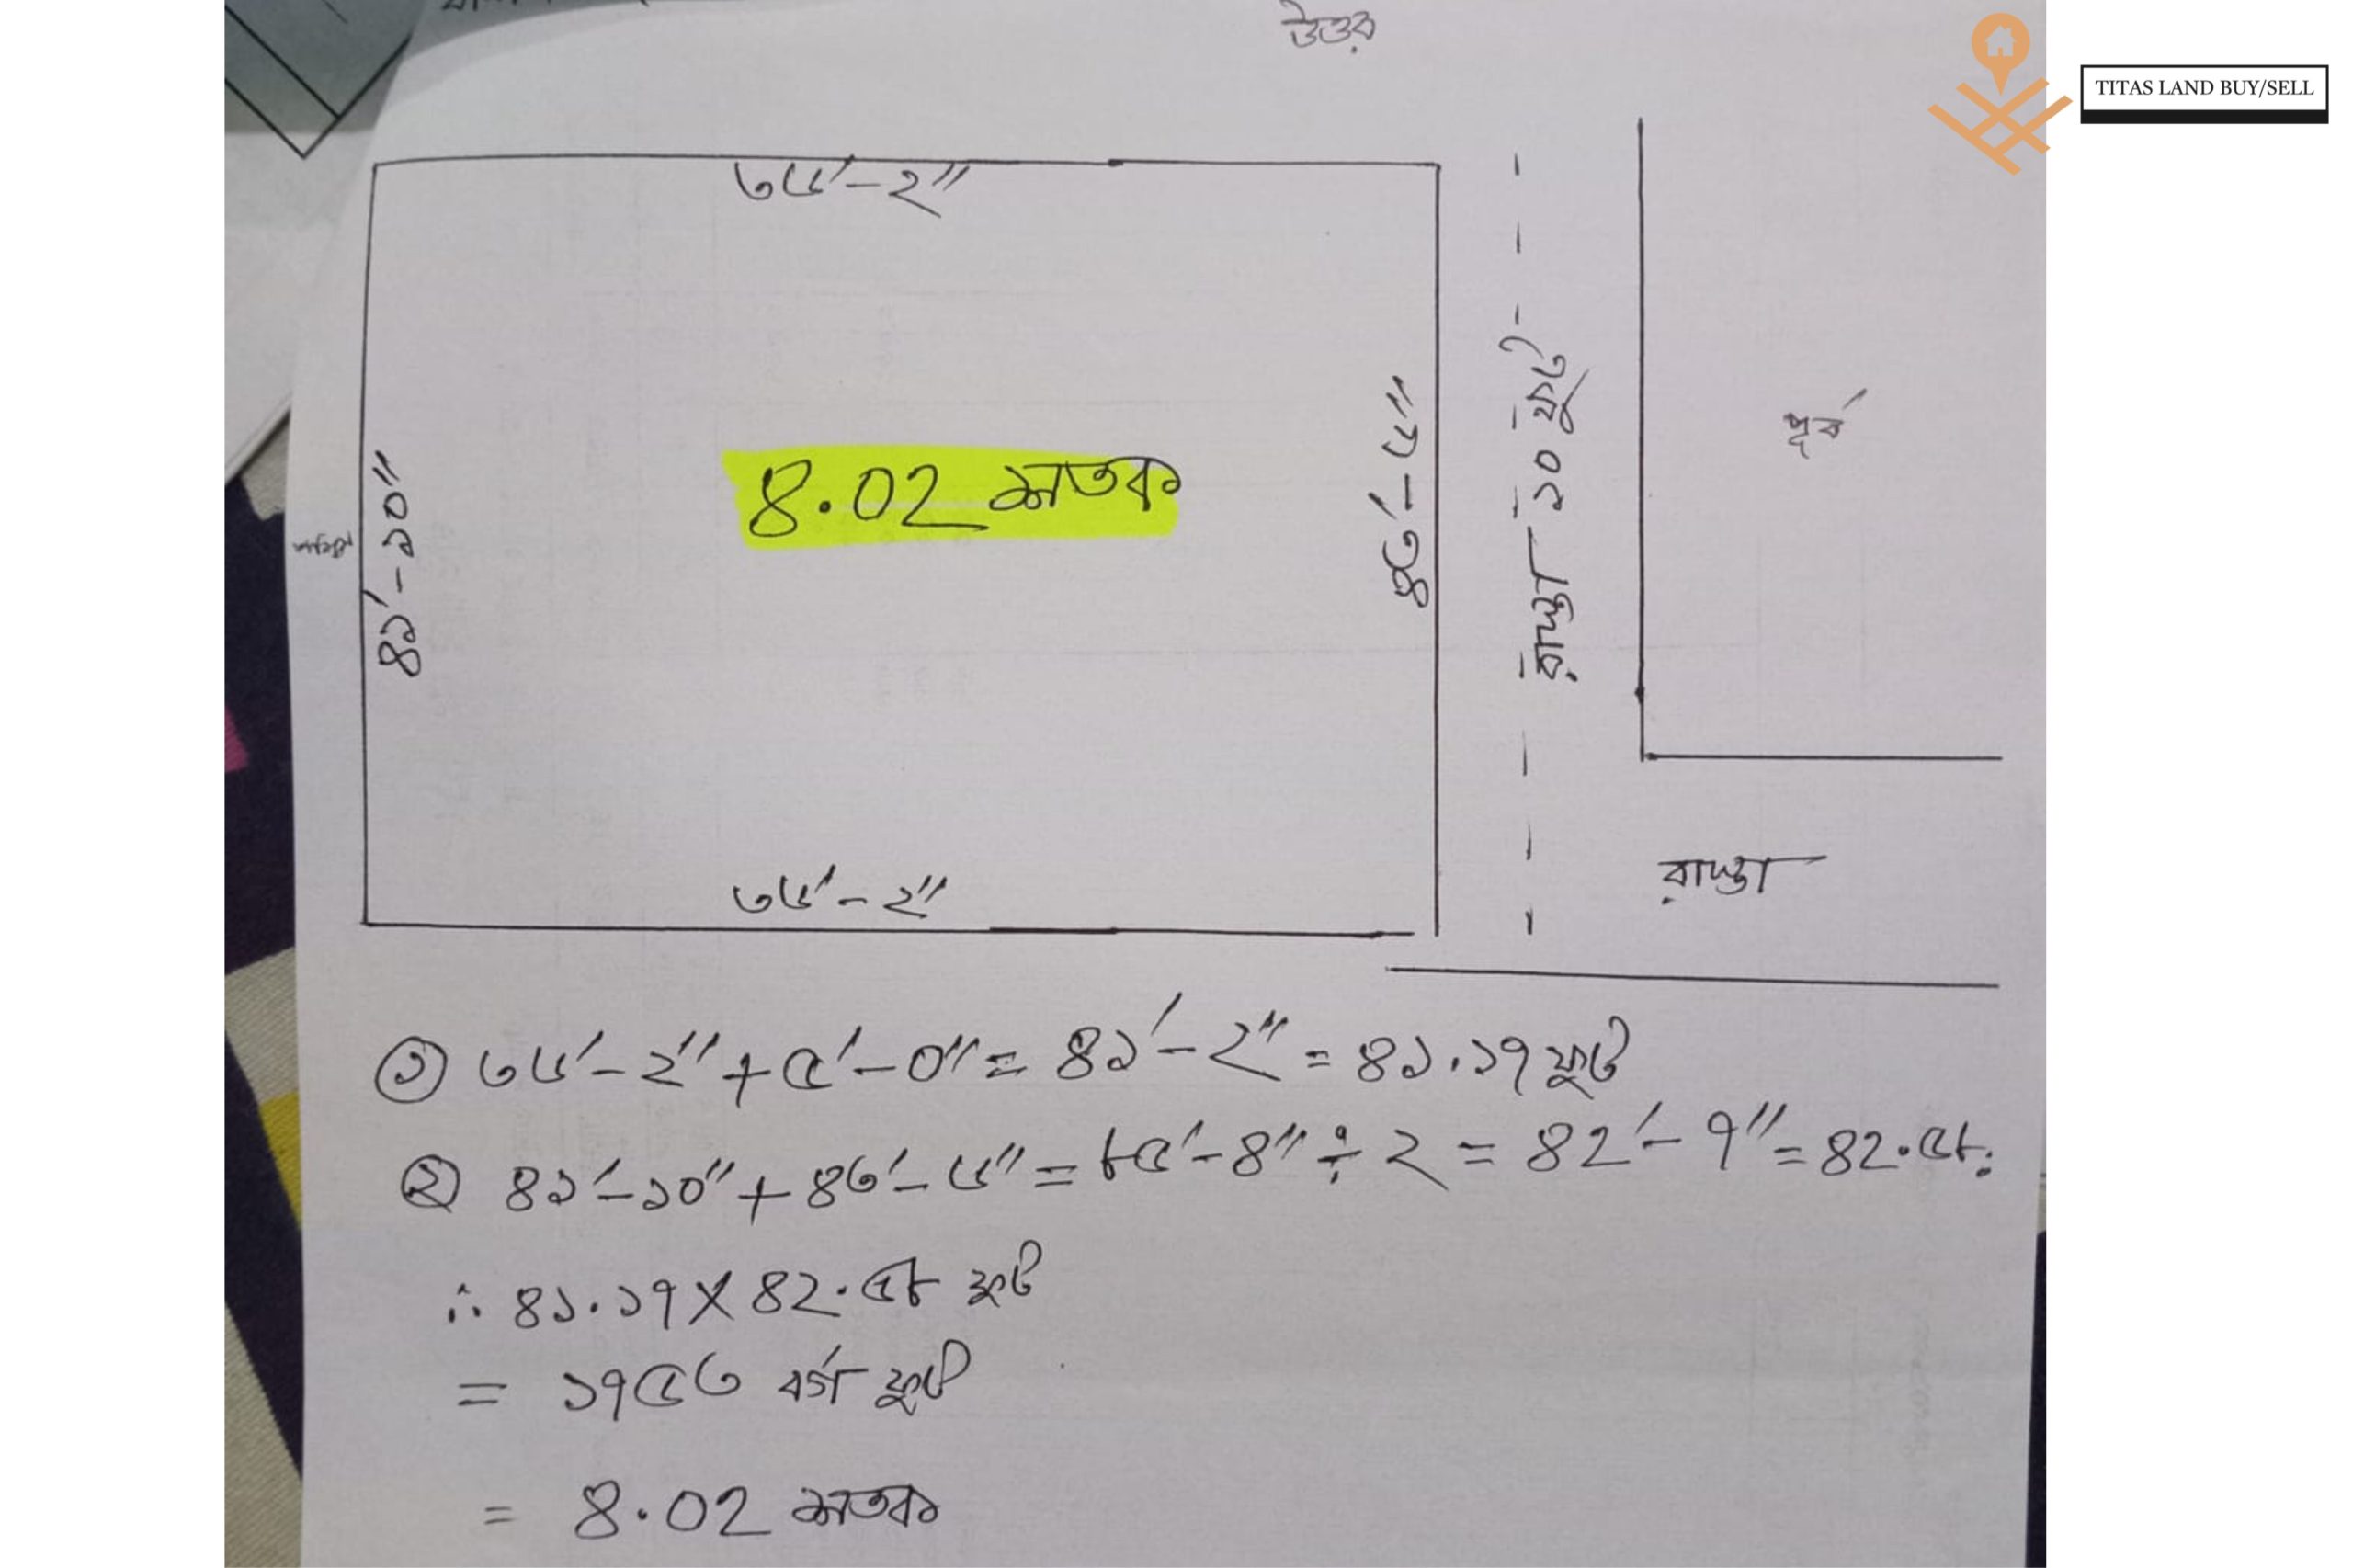 উত্তর
TITAS LAND BUY/SELL
৩৬'-২"
৪১'-১০"
৪.০২ শতক
৪৩'-৬"
রাস্তা ১০ ফুট
পূর্ব
পশ্চিম
৩৬'-২"
রাস্তা
① ৩৬'-২" + ৫'-০" = ৪১'-২" = ৪১.১৭ ফুট
② ৪১'-১০" + ৪৩'-৬" = ৮৫'-৪" ÷ ২ = ৪২'-৭" = ৪২.৫৮:
∴ ৪১.১৭ X ৪২.৫৮ ফুট
= ১৭৫৩ বর্গ ফুট
= ৪.০২ শতক